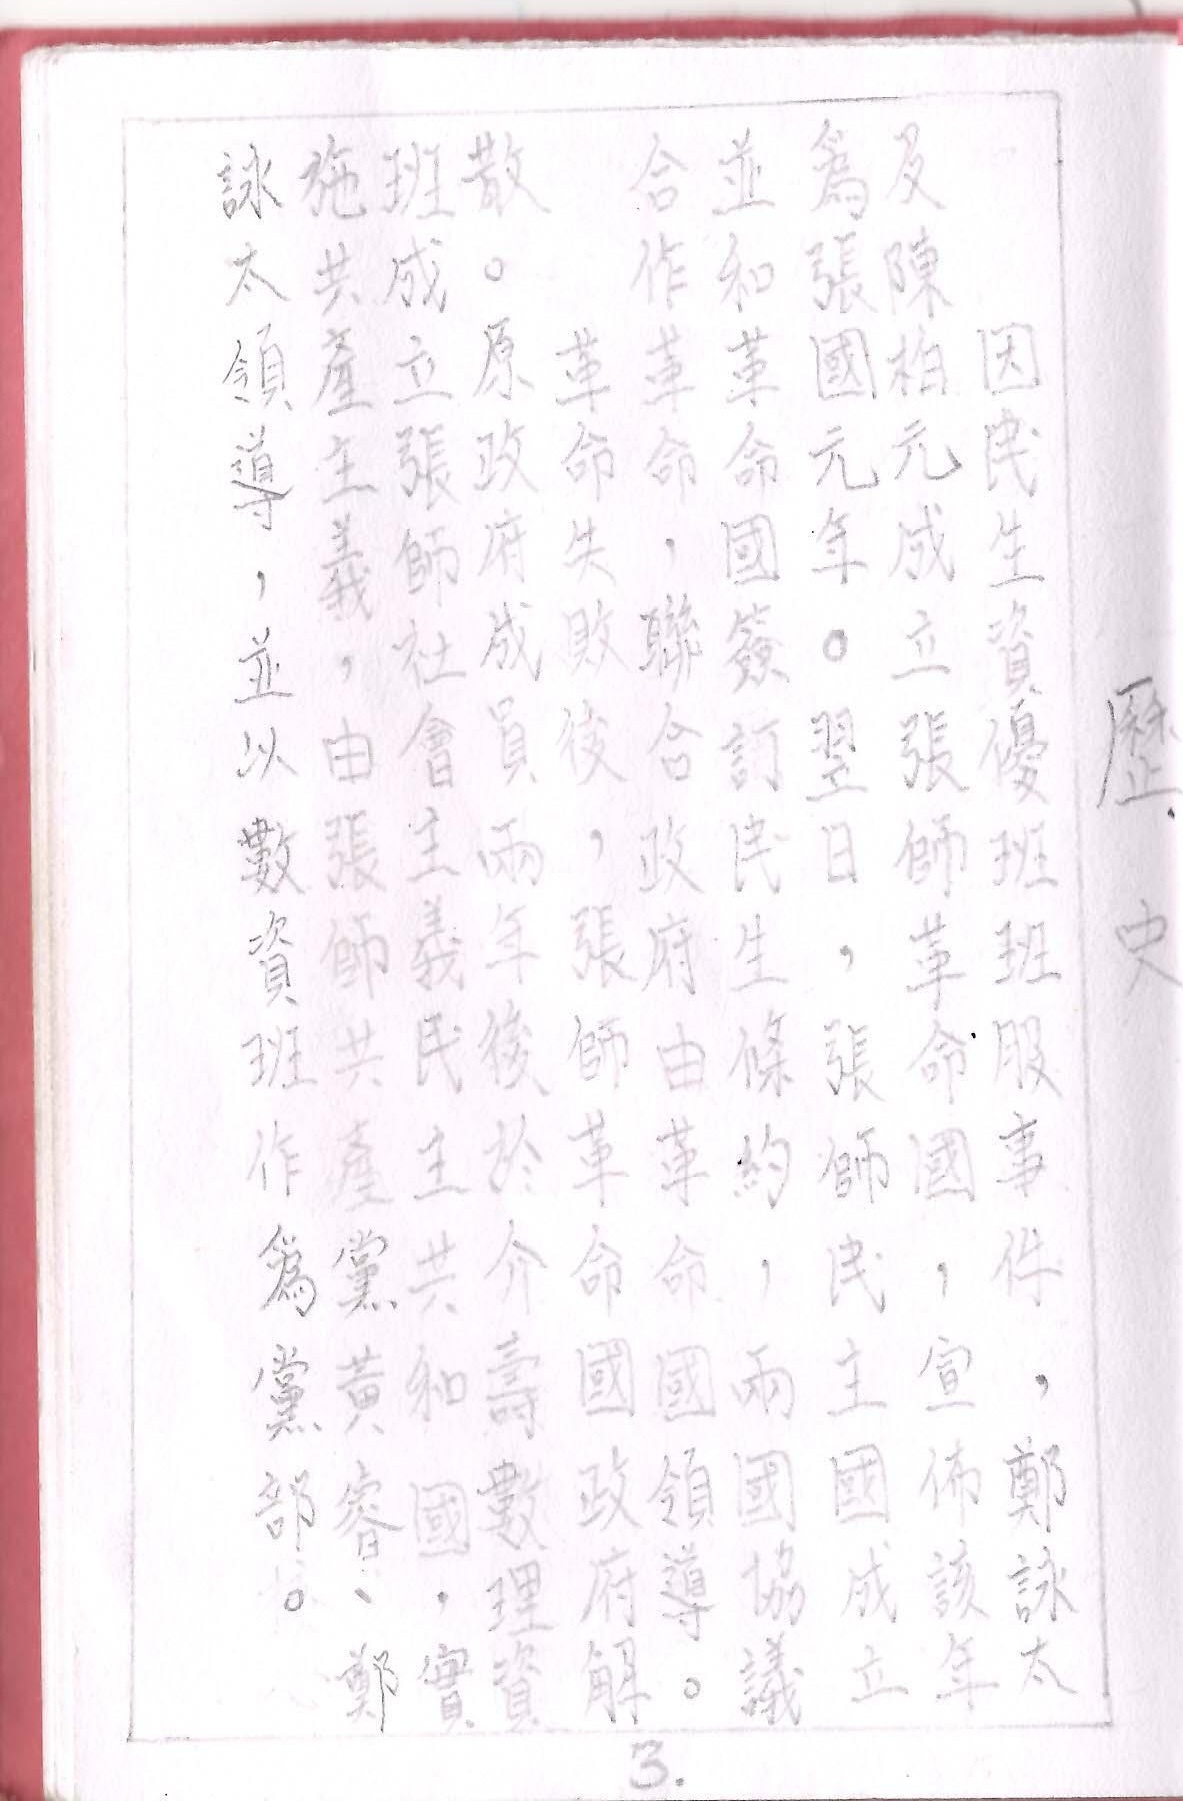 歷史
因民生資優班班服事件，鄭詠太
及陳柏元成立張師革命國，宣佈該年
為張國元年。翌日，張師民主國成立
並和革命國簽訂民生條約，兩國協議
合作革命，聯合政府由革命國領導。
革命失敗後，張師革命國政府解
散。原政府成員兩年後於介壽數理資
班成立張師社會主義民主共和國，實
施共產主義，由張師共產黨黃睿、鄭
詠太領導，並以數資班作為黨部。
3.